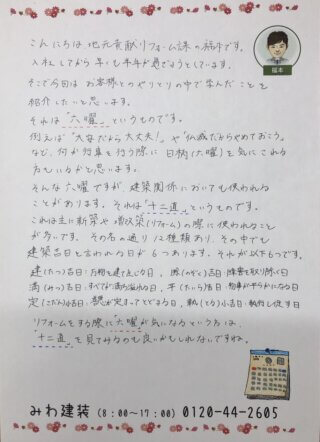 こんにちは、地元貢献リフォーム課の福本です。
入社してから早くも半年が過ぎようとしています。
そこで今回は お客様とのやりとりの中で学んだことを
紹介したいと思います。
それは"六曜"というものです。
例えば"大安だから大丈夫!"や"仏滅だからやめておこう。"
など、何か行事を行う際に 日柄(六曜)を気にされる
方もいるかと思います。
そんな六曜ですが、建築関係においても使われる
ことがあります。それは"十二直"というものです。
これは主に新築や増改築(リフォーム)の際に使われること
が多いです。その名の通り12種類あり、その中でも
建築吉日と言われる日が6つあります。それが以下6つです。
建(たつ)吉日:万物を建て生じる日、除(のぞく)吉日:障害を取り除く日
満(みつ)吉日:すべてが満ち溢れる日、平(たいら)吉日:物事が平らかになる日
定(さだん)小吉日:整が定まってとどまる日、執(とる)小吉日:執行し促す日
リフォームをする際に"六曜が気になるという方は、
"十二直"を見てみるのも良いかもしれないですね。
福本
みわ建装(8:00〜17:00)0120-44-2605